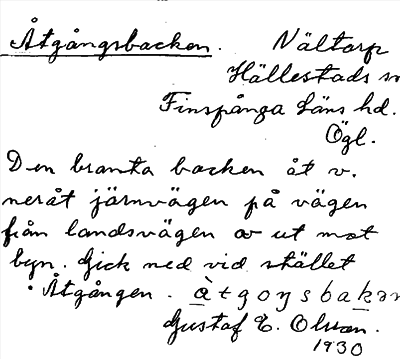 Åtgångsbacken. Nältorp
Hällestads sn
Finspånga läns hd.
Ögl.
Den branta backen åt v.
neråt järnvägen på vägen
från landsvägen o ut mot
byn. Gick ned vid stället
Åtgången. àtgoŋsbakən
Gustaf E. Olsson.
1930